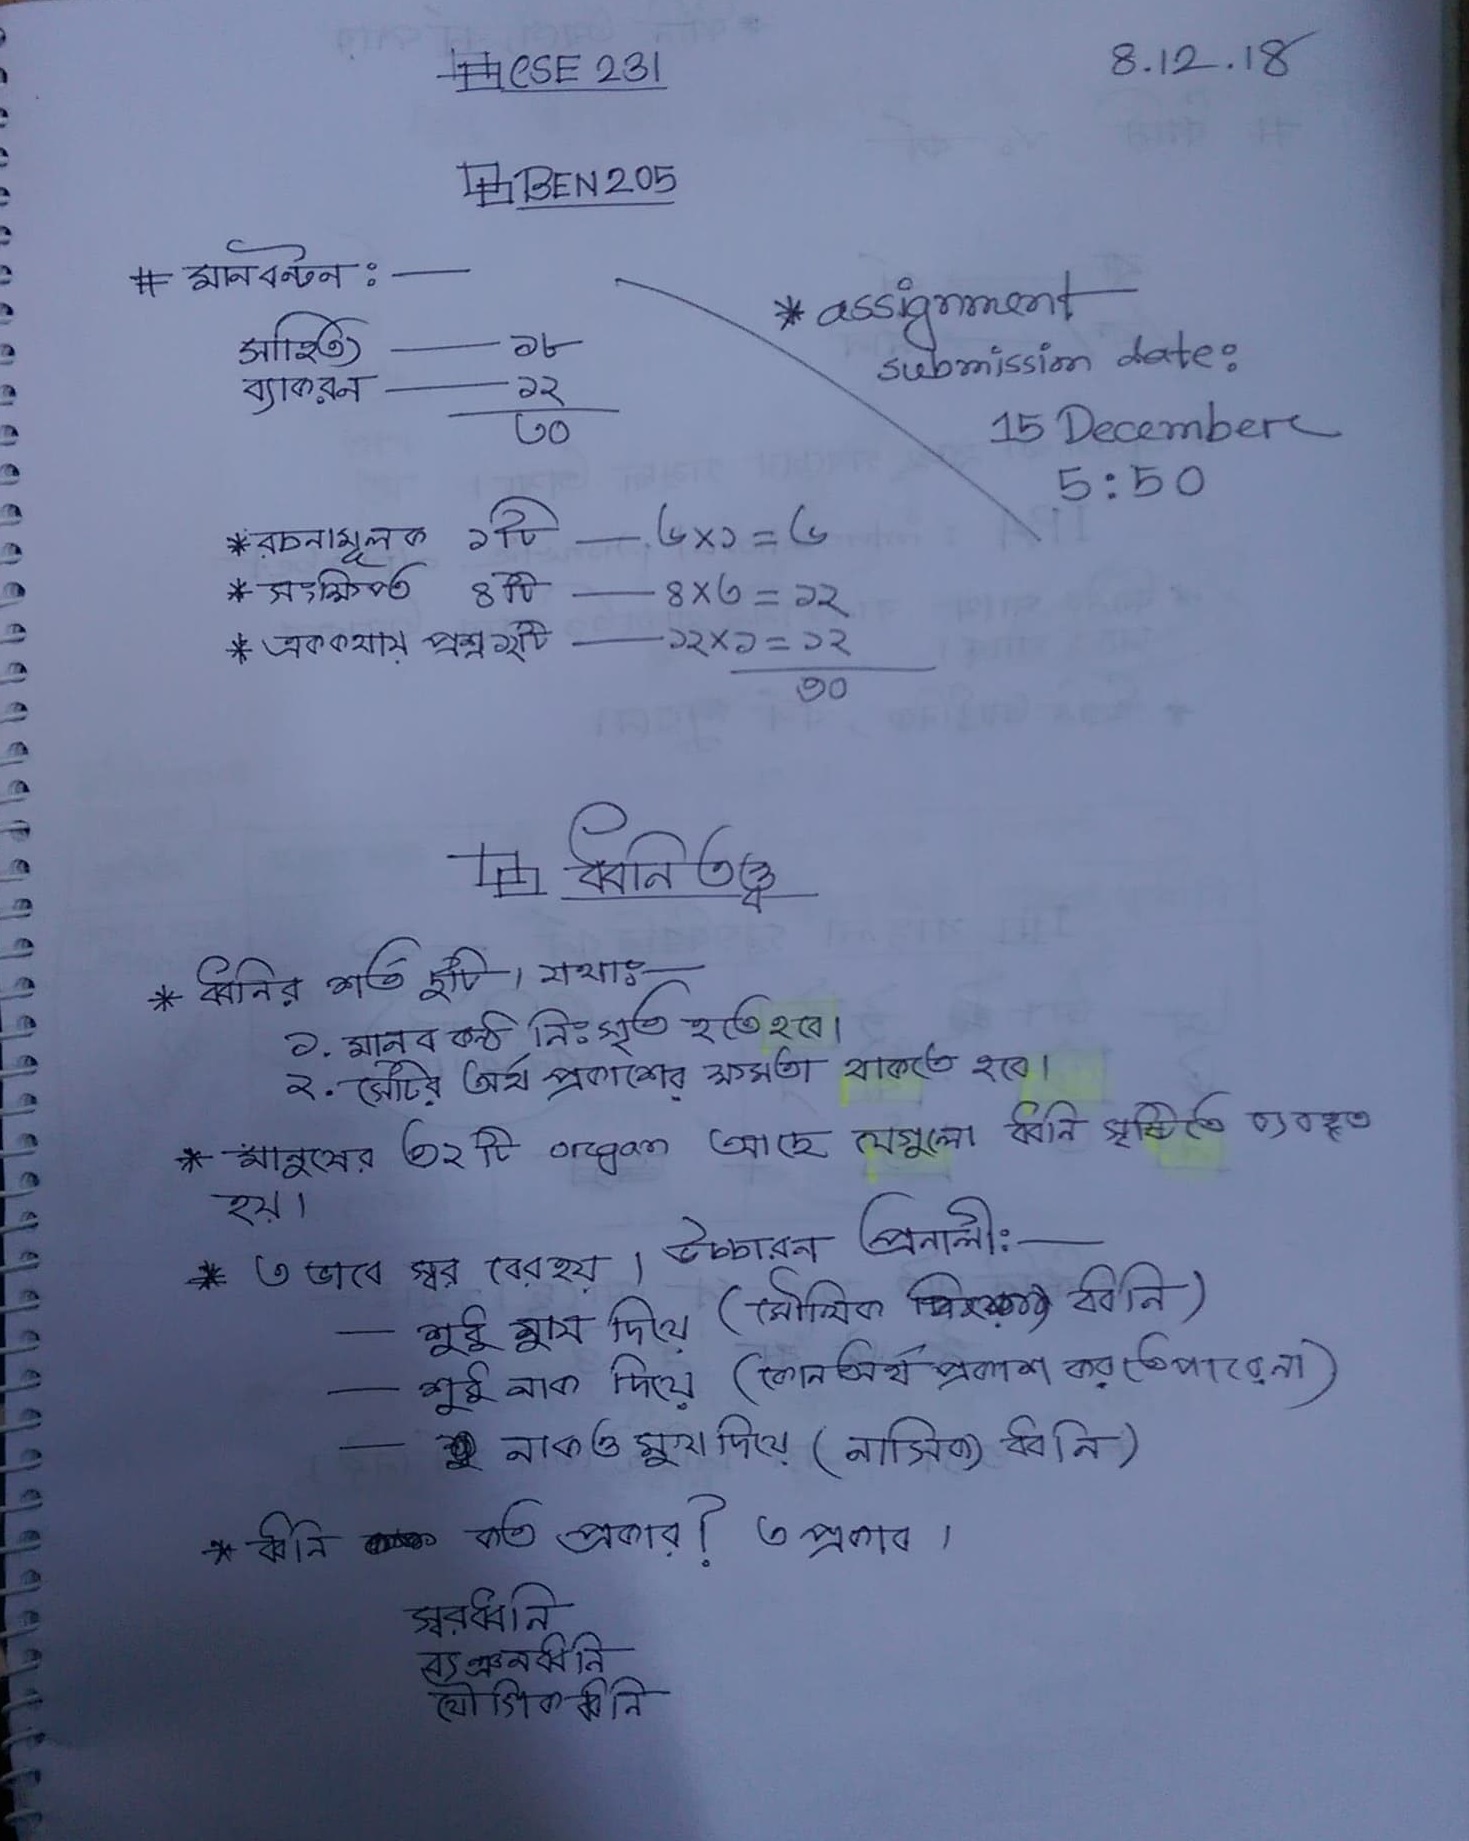 CSE 231
8.12.18
BEN 205
# মানবন্টন : —
সাহিত্য — ১৮
ব্যাকরন — ১২
৩০
* assignment
submission date:
15 December
5:50
* রচনামূলক ১টি — ৬×১ = ৬
* সংক্ষিপ্ত ৪টি — ৪×৩ = ১২
* এককথায় প্রশ্ন ১২টি — ১২×১ = ১২
৩০
ধ্বনি তত্ত্ব
* ধ্বনির শর্ত ২টি। যথাঃ—
১. মানব কন্ঠ নিঃসৃত হতে হবে।
২. সেটির অর্থ প্রকাশের ক্ষমতা থাকতে হবে।
* মানুষের ৩২টি organ আছে যেগুলো ধ্বনি সৃষ্টিতে ব্যবহৃত
হয়।
* ৩ ভাবে স্বর বের হয়। উচ্চারন প্রনালী: —
— শুধু মুখ দিয়ে (মৌখিক ধ্বনি)
— শুধু নাক দিয়ে (কোন অর্থ প্রকাশ করতে পারে না)
— নাক ও মুখ দিয়ে (নাসিক্য ধ্বনি)
* ধ্বনি কত প্রকার? ৩ প্রকার।
স্বরধ্বনি
ব্যঞ্জনধ্বনি
যৌগিক ধ্বনি